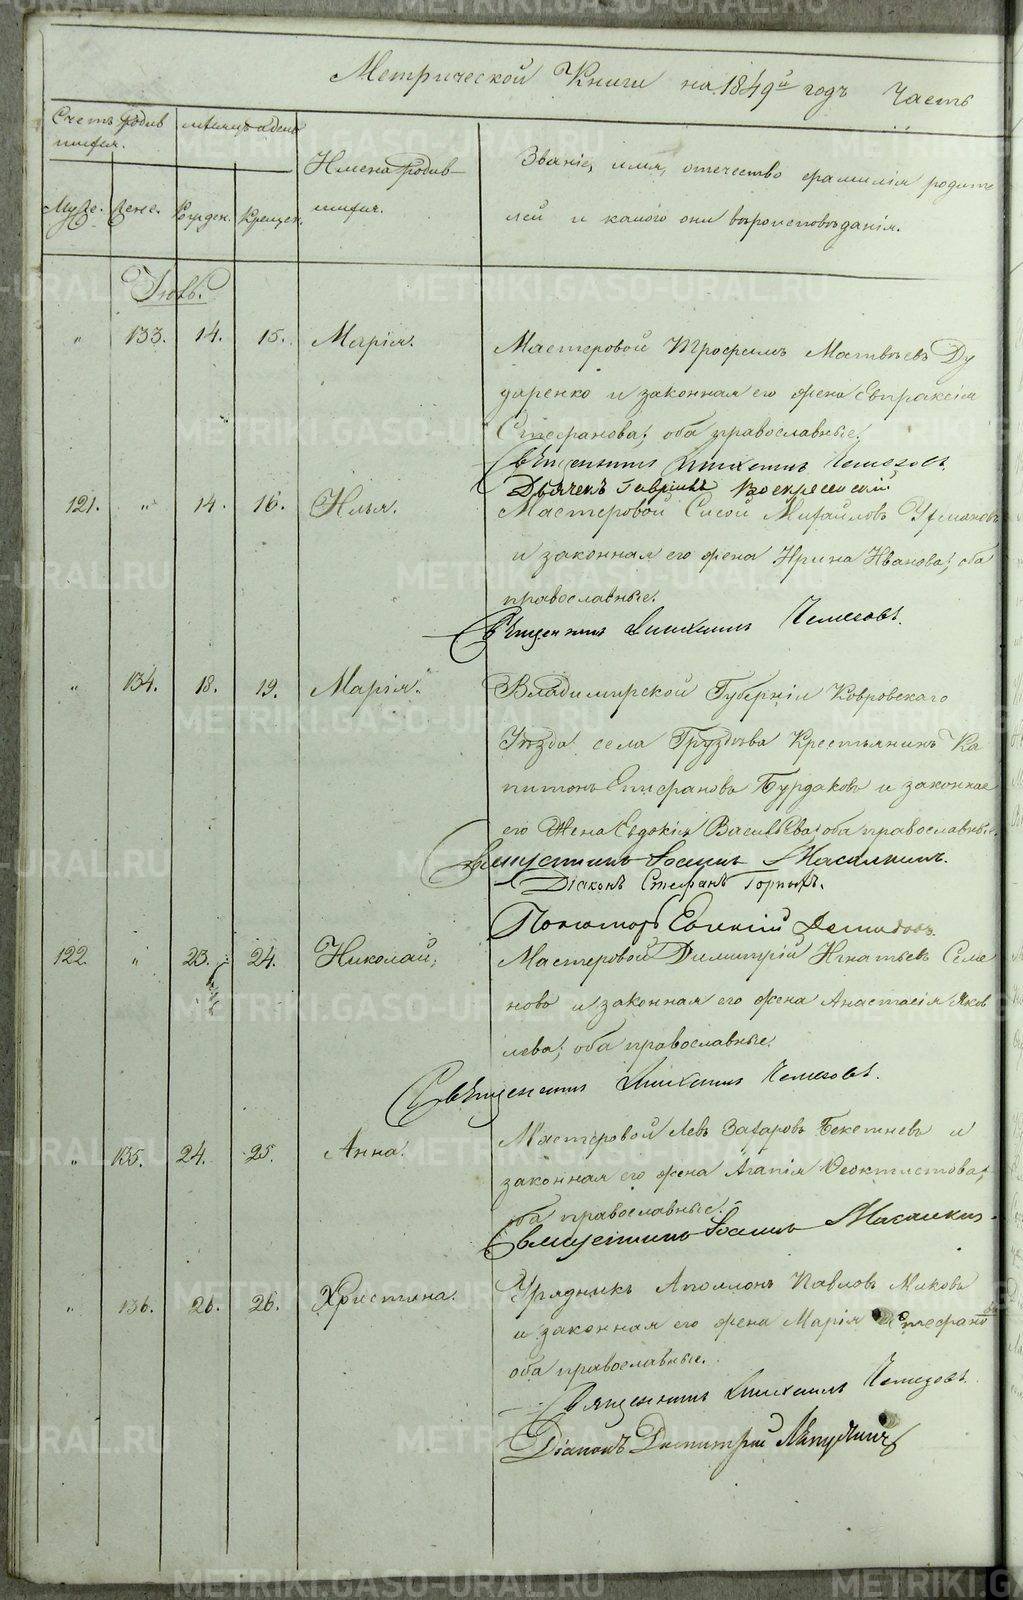 Метрической Книги на 1849й годъ Часть
Счетъ родив
шихся.
Муже. Жене.
мѣсяцъ и день
Рожден. Крещен.
Имена родив-
шихся.
Званіе, имя, отчество фамилія родите
лей и какого они вѣроисповѣданія.
Іюль.
" 133. 14. 15. Марія.
Мастеровой Трофимъ Матвѣевъ Ду
даренко и законная его жена Евпраксія
Стефанова; оба православные.
Священникъ Михаилъ
Дьячекъ Гавріилъ Воскресенскій
121. " 14. 16. Илья.
Мастеровой Сысой Михайловъ
и законная его жена Ирина Иванова; оба
православные.
Священникъ Михаилъ
" 134. 18. 19. Марія.
Владимирской Губерніи Ковровскаго
Уѣзда села Груздева Крестьянинъ Ка
питонъ Епифановъ Бурдаковъ и законная
его Жена Евдокія Васильева; оба православные.
Священникъ Іоаннъ
Діаконъ Стефанъ Горныхъ.
Пономарь Евгеній Демидовъ.
122. " 23. 24. Николай,
Мастеровой Димитрій Игнатьевъ Семе
новъ и законная его жена Анастасія Яков
лева; оба православные.
Священникъ Михаилъ
" 135. 24. 25. Анна.
Мастеровой Левъ Захаровъ Бекетневъ и
законная его жена Агапія Феоктистова;
оба православные.
Священникъ Іоаннъ
" 136. 26. 26. Христина.
Урядникъ Аполлонъ Павловъ
и законная его жена Марія Стефано
ва
оба православные.
Священникъ Михаилъ
Діаконъ Димитрій